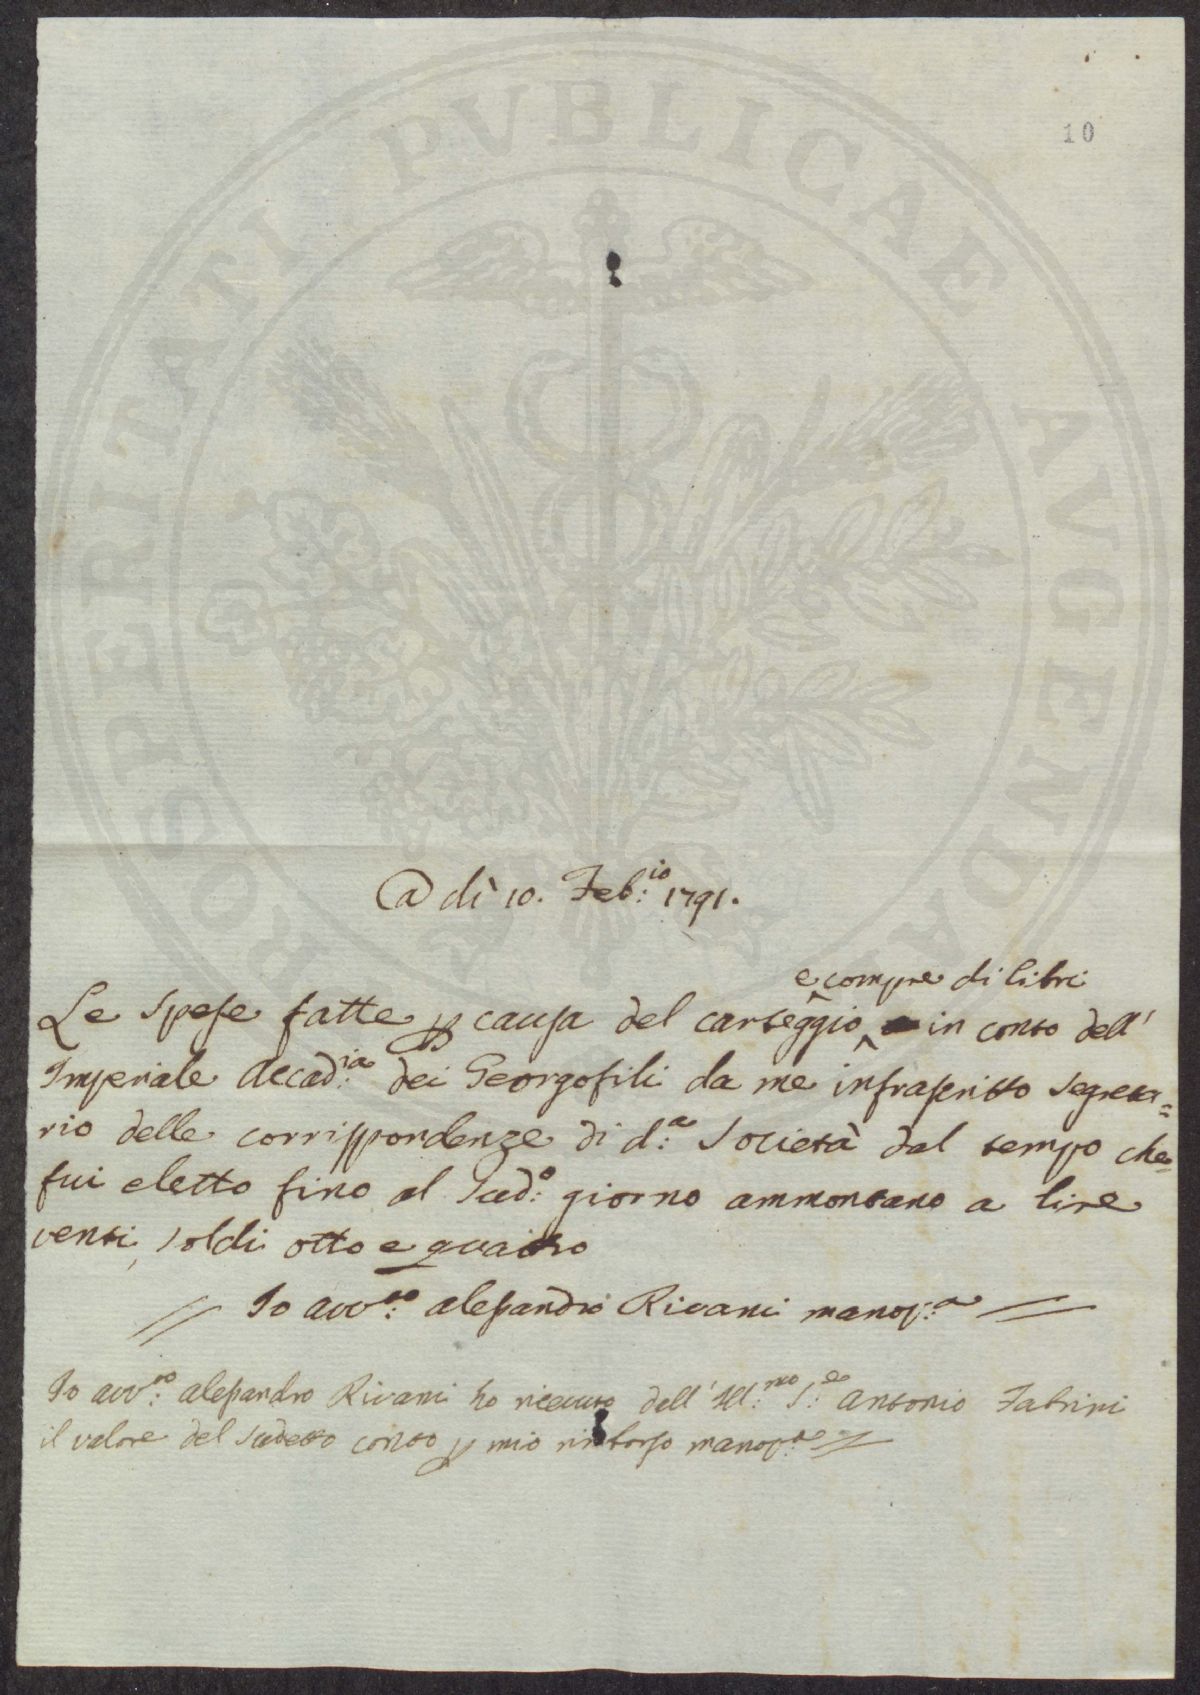 PROSPERITATI PVBLICAE AVGENDAE
10
@ dì 10. Feb:io 1791.
e compre di libri
Le Spese fatte p causa del carteggio in conto dell'
Imperiale Accad:ia dei Georgofili da me infrascritto Segreta=
rio delle corrispondenze di d:a Società dal tempo che
fui eletto fino al Sud:o giorno ammontano a lire
venti, soldi otto e quattro
// Io Avv:to Alessandro Rivani manop:a //
Io Avv:to Alessandro Rivani ho ricevuto dall' Ill:mo S:e Antonio Fabrini
il valore del Sudetto conto p mio rimborso manop:a //